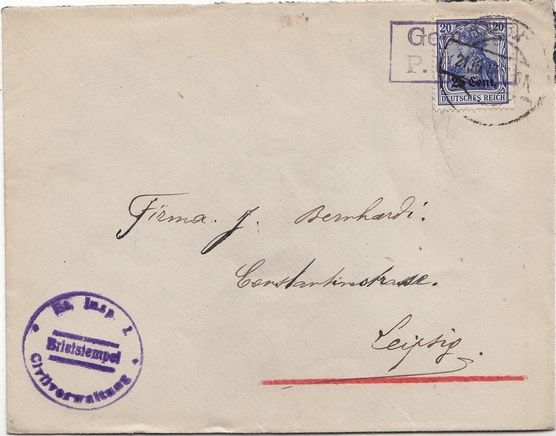 Ge
P.
20 20
25 Cent.
DEUTSCHES REICH
Firma. J. Bernhardi.
Constantinstrasse.
Leipzig.
Insp. 1
Briefstempel
Civilverwaltung